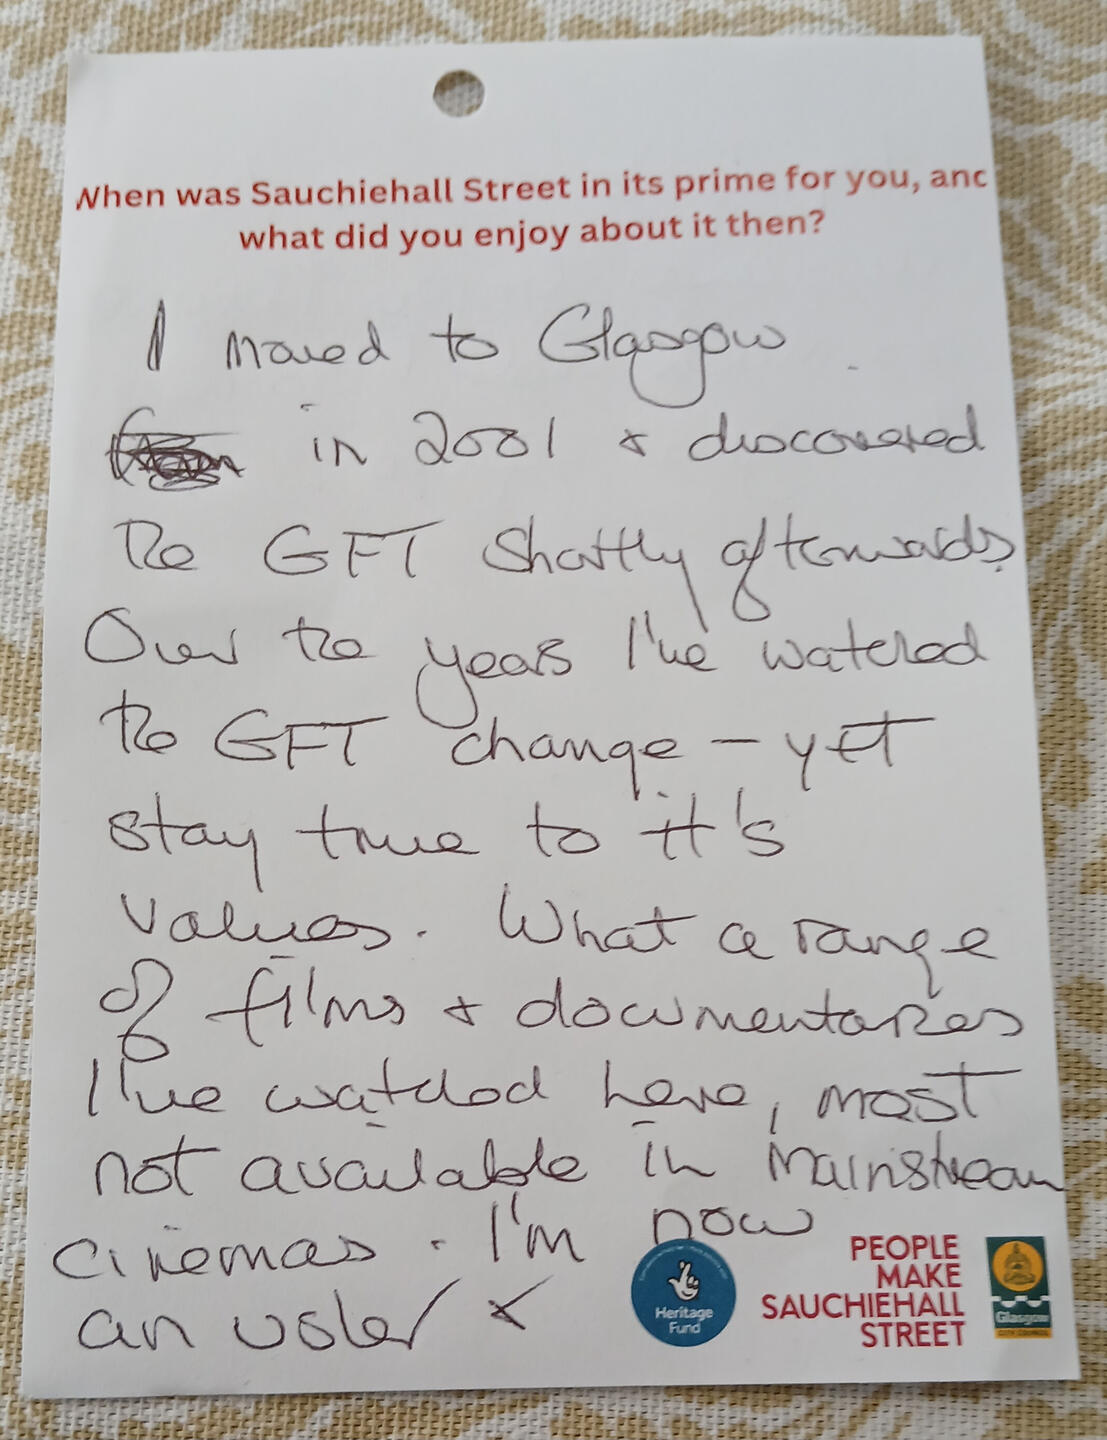 When was Sauchiehall Street in its prime for you, and
what did you enjoy about it then?
I moved to Glasgow
in 2001 & discovered
the GFT shortly afterwards.
Over the years I've watched
the GFT change - yet
stay true to it's
values. What a range
of films & documentaries
I've watched here, most
not available in mainstream
cinemas. I'm now
an usher &
Heritage
Fund
PEOPLE
MAKE
SAUCHIEHALL
STREET
Glasgow
CITY COUNCIL